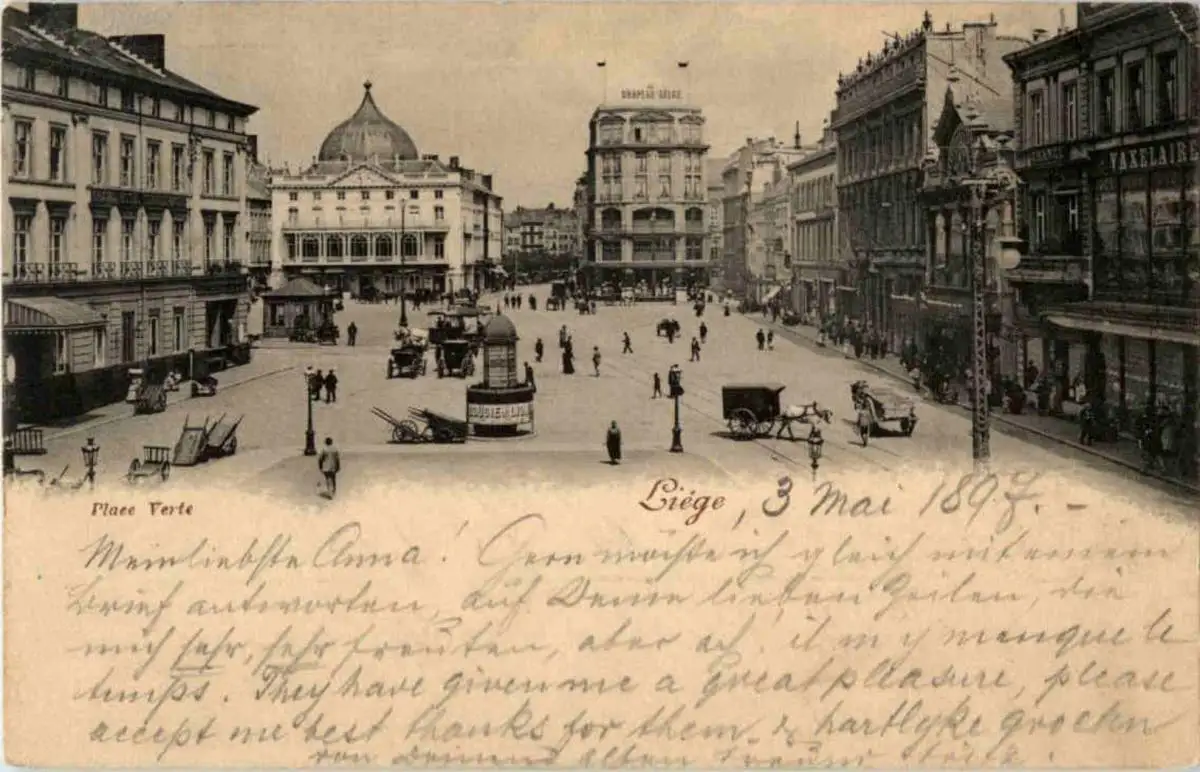 DRAPEAU BELGE
VAXELAIRE
Place Verte
Liége, 3 Mai 1897. -
Mein liebste Anna! Gern möchte ich gleich mit einem
Brief antworten, auf Deine lieben Zeilen, die
mich sehr, sehr freuten, aber ach, il m'y manque le
temps. They have given me a great pleasure, please
accept me best thanks for them & hartlyke groeten
von Deinem alten Freund